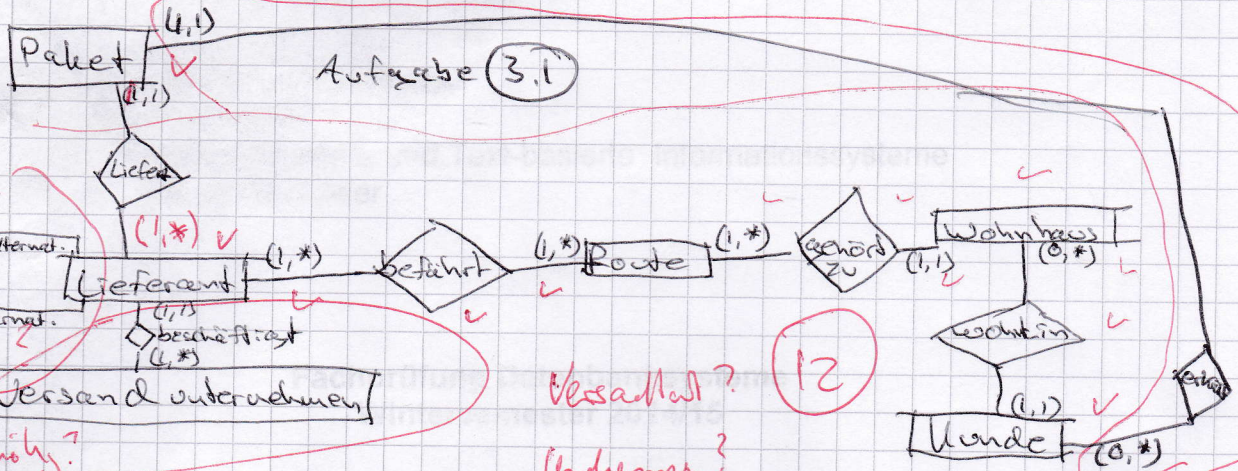 (1,1)
Paket
Aufgabe 3.1
(1,1)
Liefert
(1,*)
Lieferant
(1,*)
befährt
(1,*)
Route
(1,*)
gehört
zu
(1,1)
Wohnhaus
(0,*)
wohnt in
(1,1)
Kunde
(0,*)
(1,1)
beschäftigt
(1,*)
Versandunternehmen
12